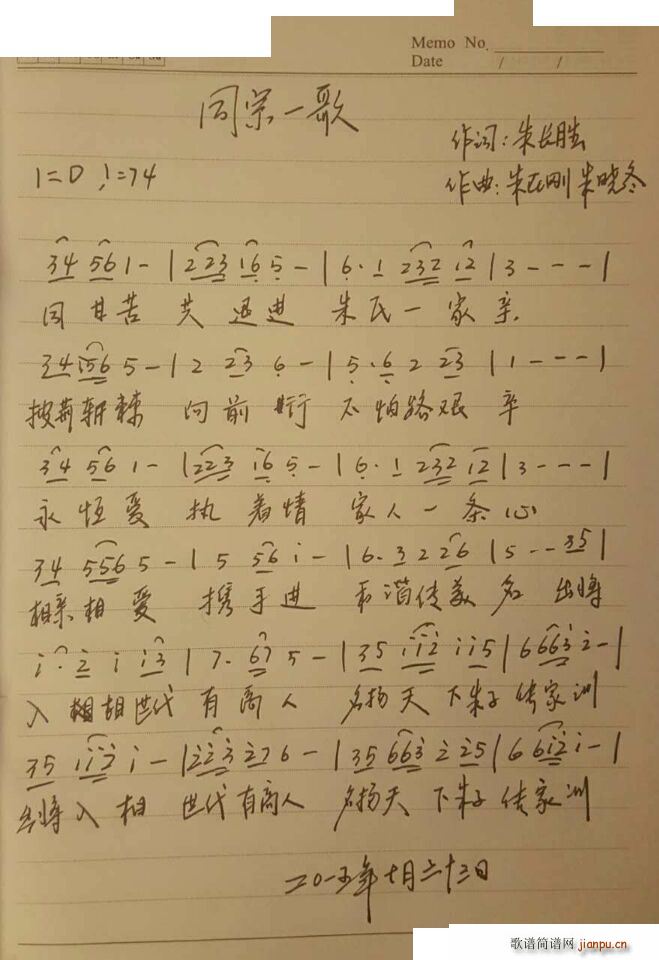 Memo No.
Date / /
同宗一歌
作词:朱长胜
1=D ♩=74
作曲:朱氏刚 朱晓冬
34 561- | 2223 165- | 6·1 232 12 | 3--- |
同甘苦 共 迈进 朱氏一家亲
34 1565-| 2 23 6-| 5·6 2 23 | 1--- |
披荆斩棘 向前 行 不怕路艰辛
34 56 1- | 2223 165- | 6·1 232 12 | 3--- |
永恒爱 执着情 家人一条心
34 5565- | 5 56 i- | 6·3 2 26 | 5--35 |
相亲相爱 携手进 和谐传美名 出将
i·2 i i3 | 7·67 5- | 35 iii2 ii5 | 66632- |
入相 世代有高人 名扬天下朱子传家训
35 1ii2 i- | 2223 276- | 35 663 2 25 | 6 6i2i- |
出将入相 世代有高人 名扬天下朱子传家训
二〇一五年七月二十三日
歌谱简谱网 jianpu.cn